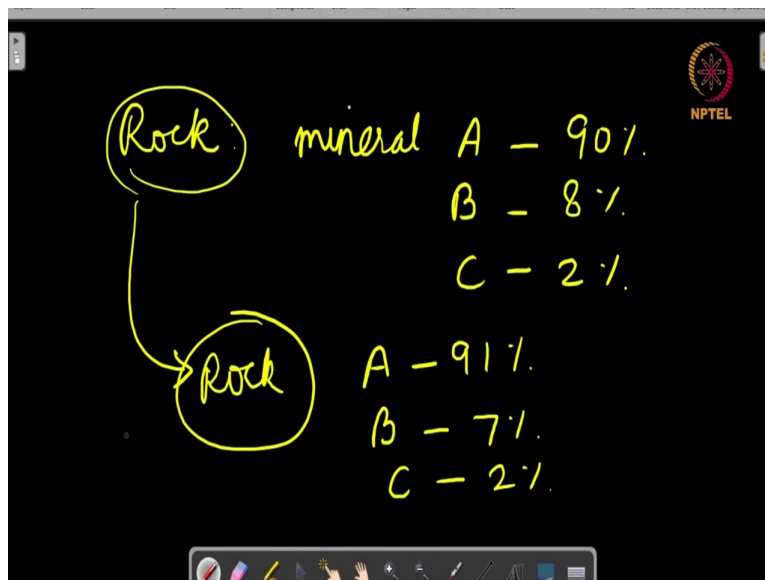 NPTEL
Rock: mineral A - 90%.
B - 8%.
C - 2%.
Rock A - 91%.
B - 7%.
C - 2%.